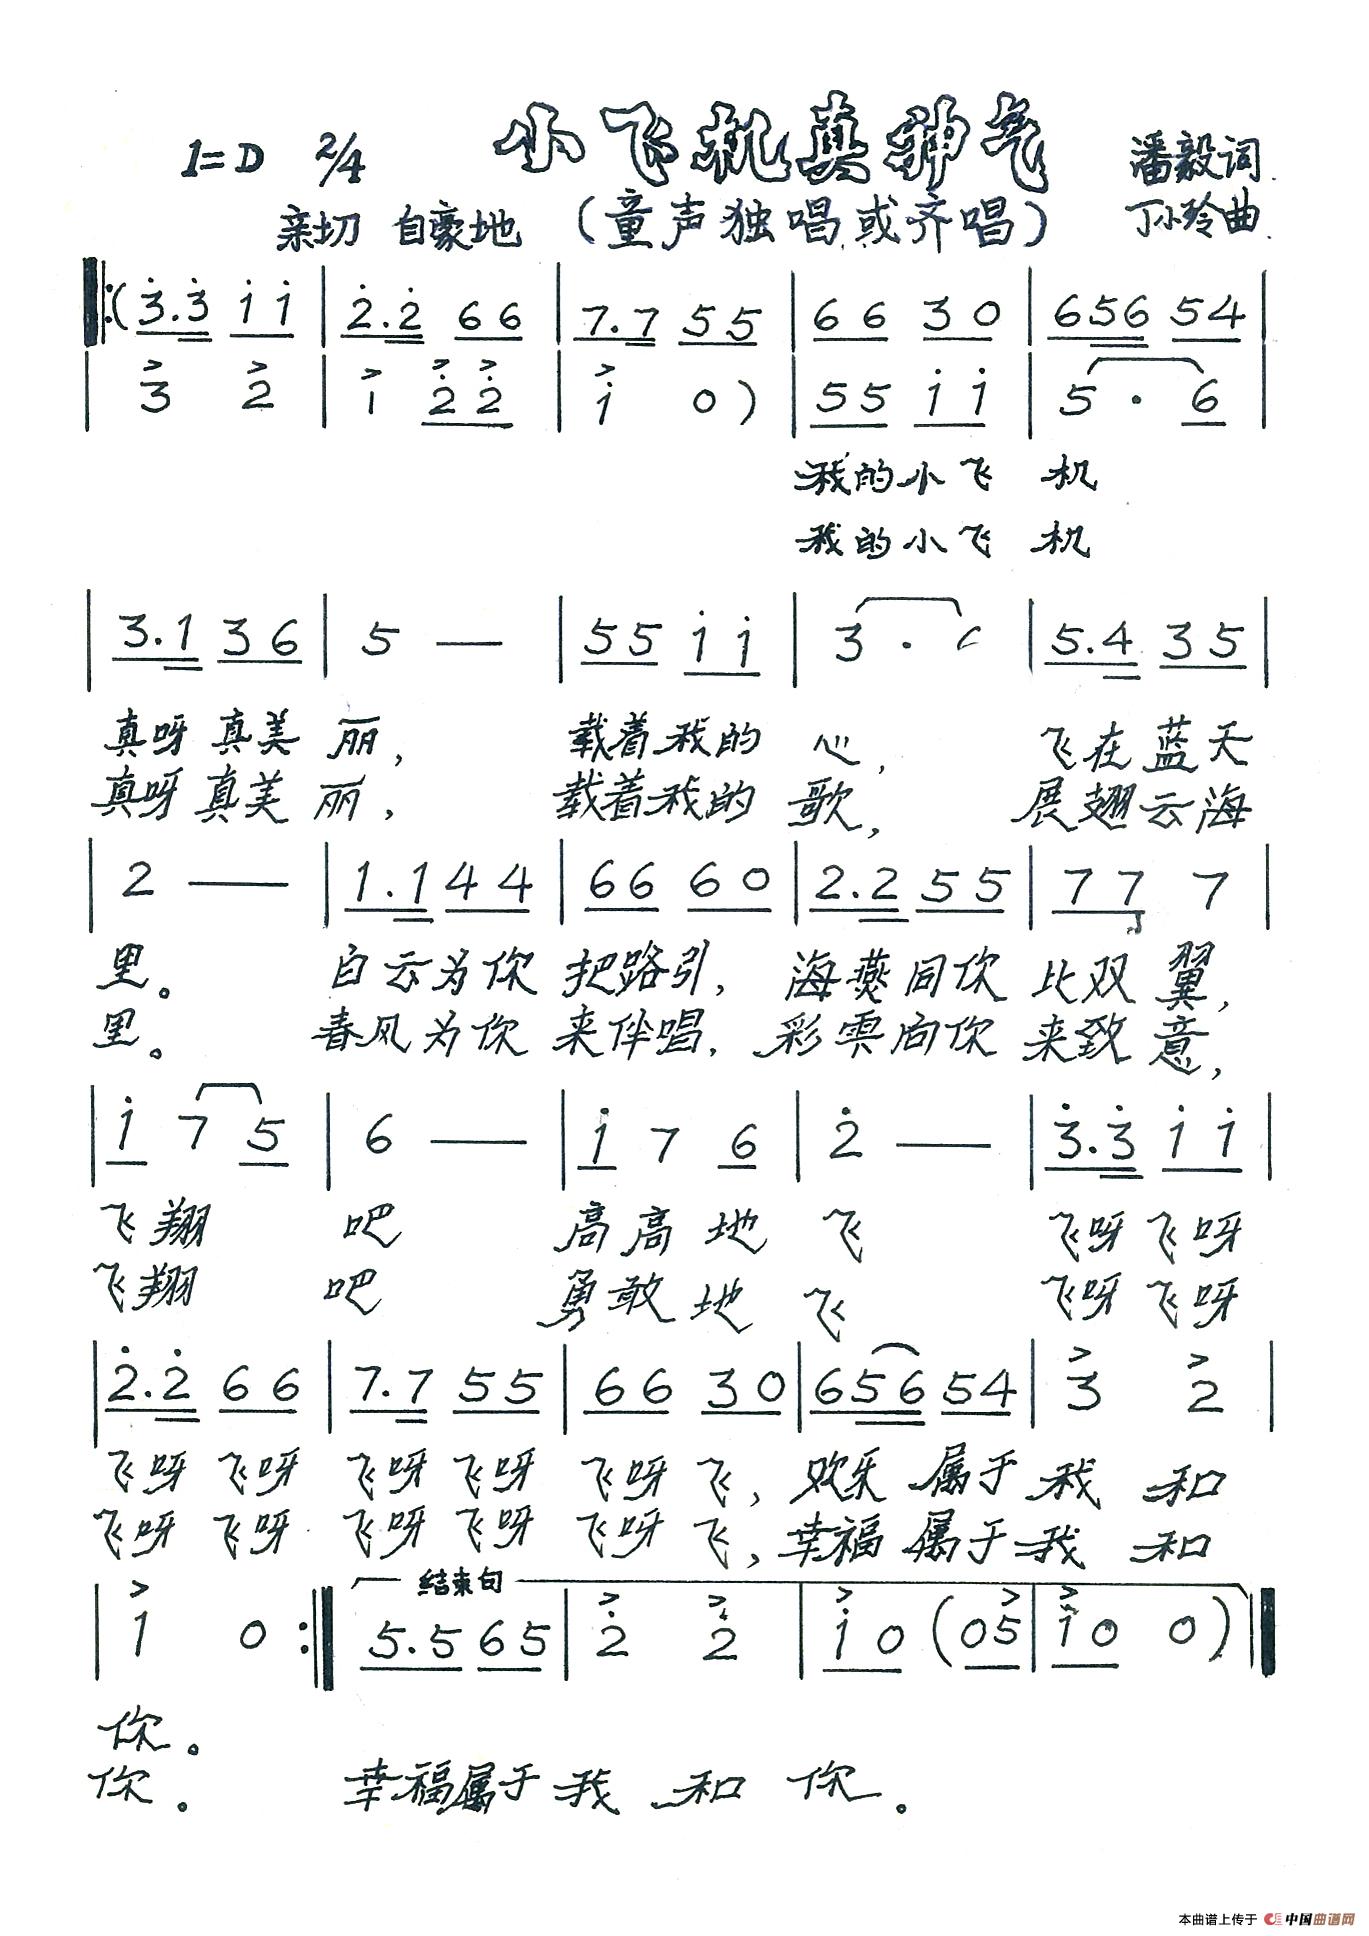 小飞机真神气
1=D 2/4 潘毅词
亲切 自豪地 (童声独唱或齐唱) 丁小玲曲
‖:(3̇.3̇ i i | 2̇.2̇ 6 6 | 7.7 5 5 | 6 6 3 0 | 6 5 6 5 4 |
| 3 2 | 1 2̇ 2̇ | i 0 ) | 5 5 i i | 5 · 6 |
我的小飞 机
我的小飞 机
| 3.1 3 6 | 5 — | 5 5 i i | 3 · | 5.4 3 5 |
真呀真美 丽, 载着我的 心, 飞在蓝天
真呀真美 丽, 载着我的 歌, 展翅云海
| 2 — | 1.1 4 4 | 6 6 6 0 | 2.2 5 5 | 7 7 7 |
里。 白云为你 把路引, 海燕同你 比双翼,
里。 春风为你 来伴唱, 彩雲向你 来致意,
| i 7 5 | 6 — | i 7 6 | 2̇ — | 3̇.3̇ i i |
飞翔 吧 高高地 飞 飞呀飞呀
飞翔 吧 勇敢地 飞 飞呀飞呀
| 2̇.2̇ 6 6 | 7.7 5 5 | 6 6 3 0 | 6 5 6 5 4 | 3 2 |
飞呀飞呀 飞呀飞呀 飞呀飞, 欢乐属于我 和
飞呀飞呀 飞呀飞呀 飞呀飞, 幸福属于我 和
结束句
| 1 0 :‖ 5.5 6 5 | 2̇ 2̇ | i 0 ( 0 5 | i 0 0 ) ‖
你。
你。 幸福属于我 和 你。
本曲谱上传于 中国曲谱网